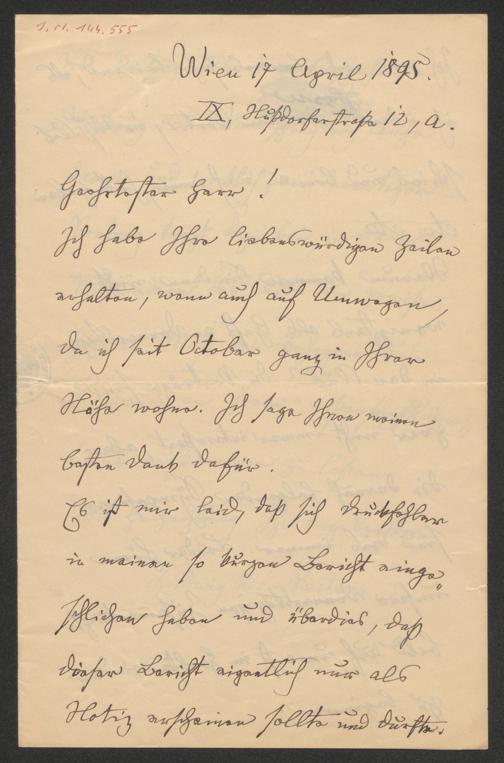 I. N. 144.555
Wien 17 April 1895.
IX, Nußdorferstraße 12, a.
Geehrtester Herr!
Ich habe Ihre liebenswürdigen Zeilen
erhalten, wenn auch auf Umwegen,
da ich seit October ganz in Ihrer
Nähe wohne. Ich sage Ihnen meinen
besten Dank dafür.
Es ist mir leid, daß sich Druckfehler
in meinen so kurzen Bericht einge„
schlichen haben und überdies, daß
dieser Bericht eigentlich nur als
Notiz erscheinen sollte und durfte.